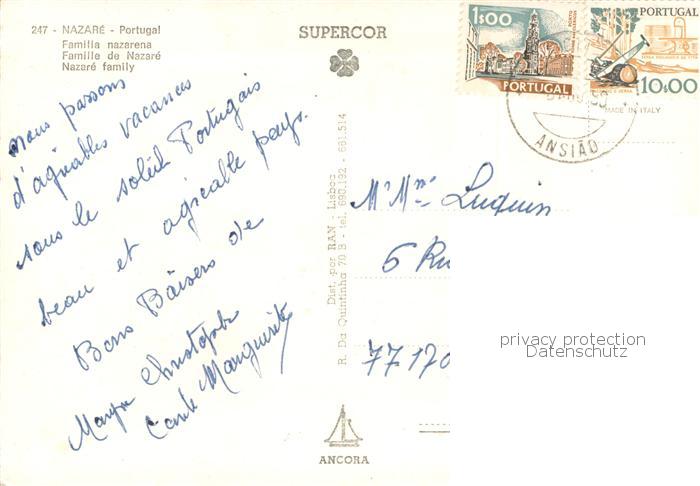 247 - NAZARÉ - Portugal
Família nazarena
Famille de Nazaré
Nazaré family
SUPERCOR
1$00
PORTUGAL
PORTUGAL
10$00
MADE IN ITALY
ANSIÃO
Nous passons
d'agréables vacances
sous le soleil Portugais
beau et agréable pays.
Bons Baisers de
Christophe
Marguerite
Dist. por RAN - Lisboa
R. Da Quintinha 70 B - tel. 690.192 - 661.514
Mr Mme Luquin
6 Ru
77170
privacy protection
Datenschutz
ANCORA